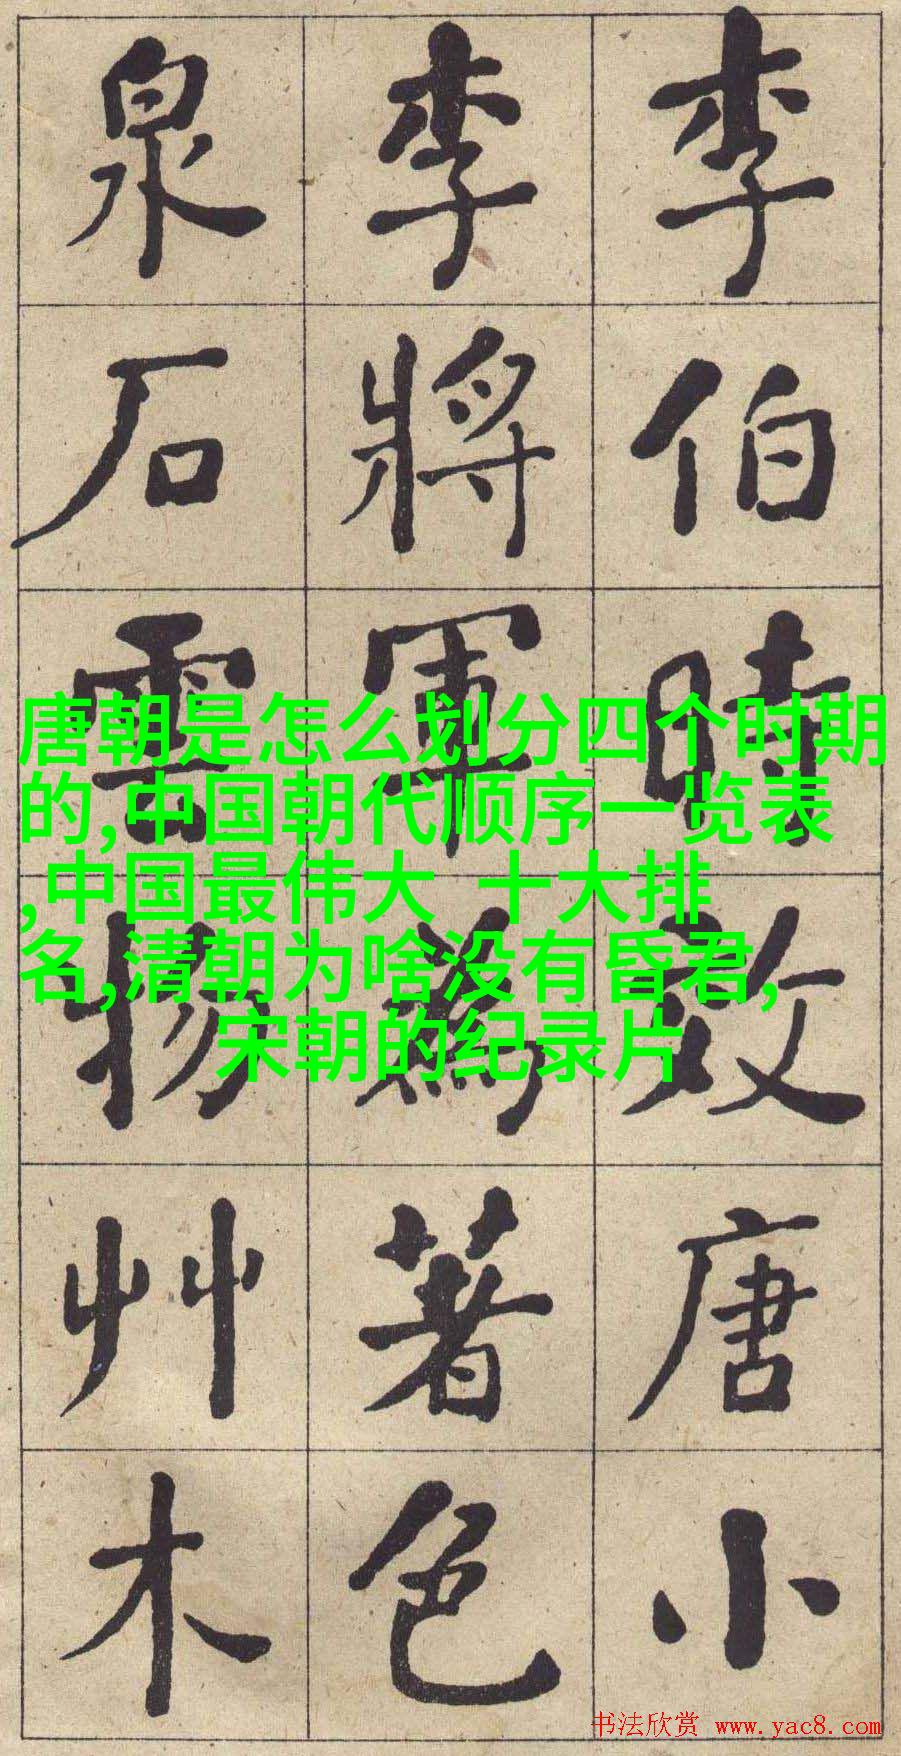 李伯時效唐小
李將軍為著色
泉石雲物艸木
唐朝是怎么划分四个时期
的,中国朝代顺序一览表
,中国最伟大 十大排
名,清朝为啥没有昏君,
宋朝的纪录片
书法欣赏 www.yac8.com